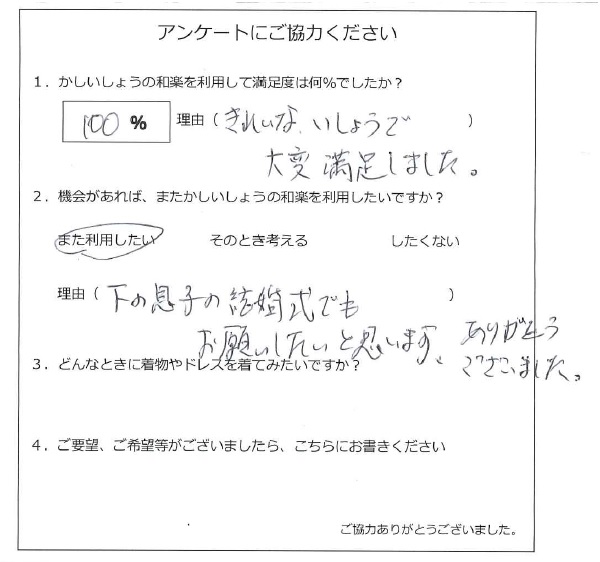 アンケートにご協力ください
1．かしいしょうの和楽を利用して満足度は何%でしたか？
100 % 理由（きれいな、いしょうで ）
大変満足しました。
2．機会があれば、またかしいしょうの和楽を利用したいですか？
また利用したい そのとき考える したくない
理由（下の息子の結婚式でも ）
お願いしたいと思います、ありがとう
ございました。
3．どんなときに着物やドレスを着てみたいですか？
4．ご要望、ご希望等がございましたら、こちらにお書きください
ご協力ありがとうございました。